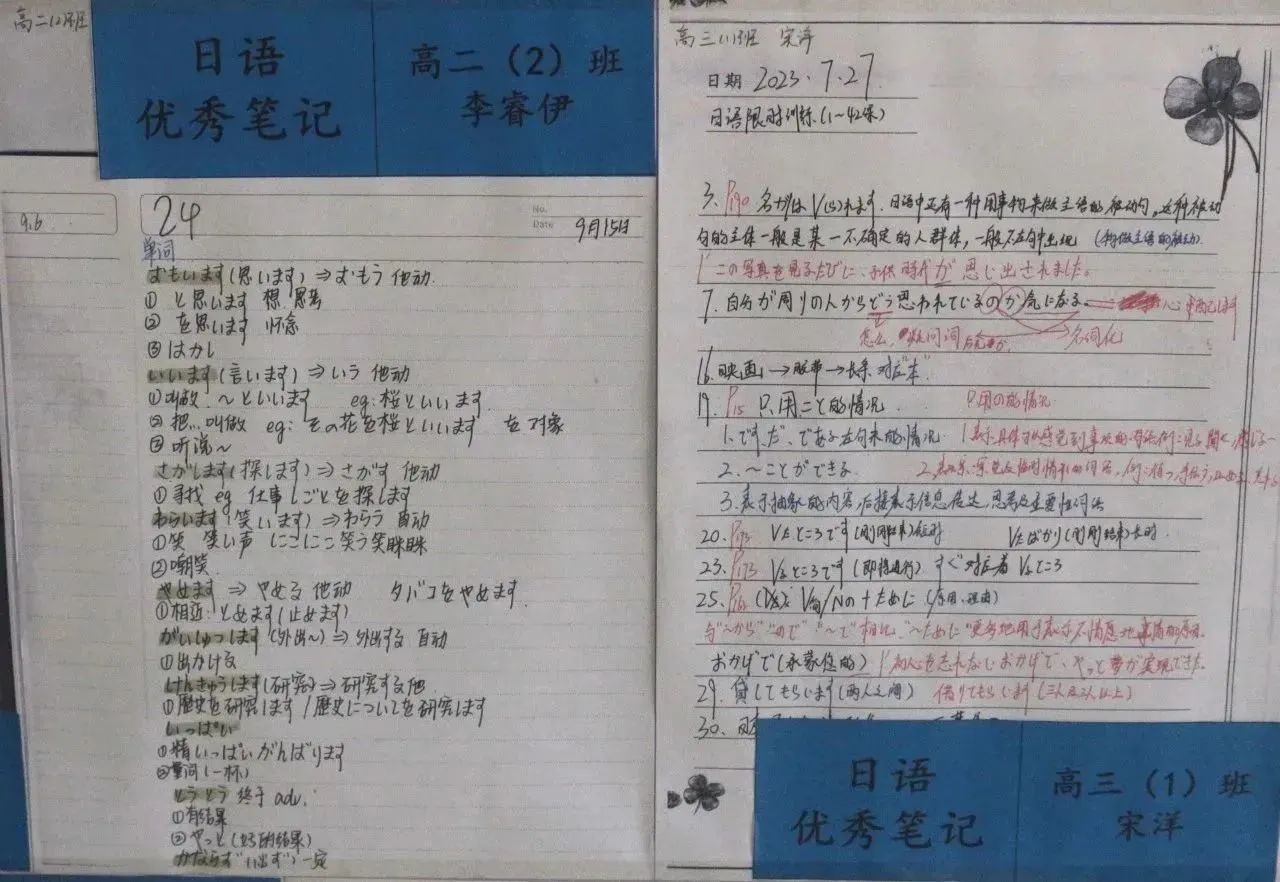 高二(2)班
日语
优秀笔记
高二（2）班
李睿伊
9.6
24
No.
Date 9月15日
单词
おもいます(思います)⇒おもう 他动.
① と思います 想 思考
② を思います 怀念
③ はかし
いいます(言います)⇒いう 他动
①叫做. ～といいます eg:桜といいます.
②把...叫做 eg: その花を桜といいます を对象
③ 听说～
さがします(探します)⇒さがす 他动
①寻找 eg 仕事しごとを探します
わらいます(笑います)⇒わらう 自动
①笑 笑い声 にこにこ笑う笑眯眯
②嘲笑.
やめます ⇒ やめる 他动 タバコをやめます.
①相近:とめます(止めます)
がいしゅつします(外出～)⇒外出する 自动
①出かける
けんきゅうします(研究)⇒研究する他
①歴史を研究します/歴史についてを研究します
いっぱい
①精いっぱいがんばります
②量词(一杯)
とうとう 终于 adv.
①有结果
②やっと(好的结果)
かならず 一定
高三(1)班 宋洋
日期 2023.7.27
日语限时训练(1～42课)
3. P190 名がは V(ら)れます. 日语中还有一种用事物来做主语的被动句,这种被动
句的主体一般是某一不确定的人群体,一般不在句中出现 (物做主语的被动).
この写真を見るたびに、子供時代が思い出されました。
7. 自分が周りの人からどう思われているのか気になる.
怎么, 疑问词后+か. 名词化
16. 映画→胶带→长条 对应"本"
19. P15 只用こと的情况 只用の的情况
1.です、だ、である在句末的情况
2.～ことができる
3.表示抽象的内容,后接表示信息传达,思考及重要性词语
20. P173 Vたところです(刚刚结束)短时 Vたばかり(刚刚结束)长时.
23. P173 Vるところです(即将进行) すぐ 对应着 Vるところ
25. Nの+ために (原因.理由)
与"～から""ので""～で"相比,"～ために"更多地用于表示不情愿地事情的原因.
おかげで(承蒙您的) 初心を忘れないおかげで、やっと夢が実現できた.
29. 貸してもらいます(两人之间) 借りてもらいます(三人及三人以上)
30.
日语
优秀笔记
高三（1）班
宋洋